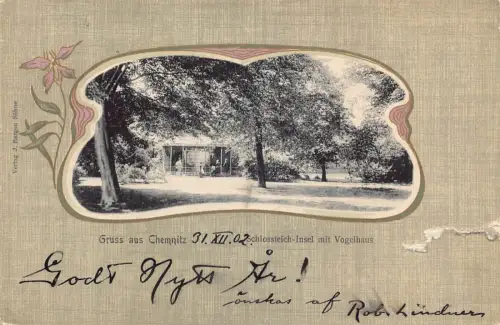 Verlag J. Burger Söhne
Gruss aus Chemnitz 31. XII. 02. Schlossteich-Insel mit Vogelhaus
Godt Nytt År!
önskas af Rob. Lindners